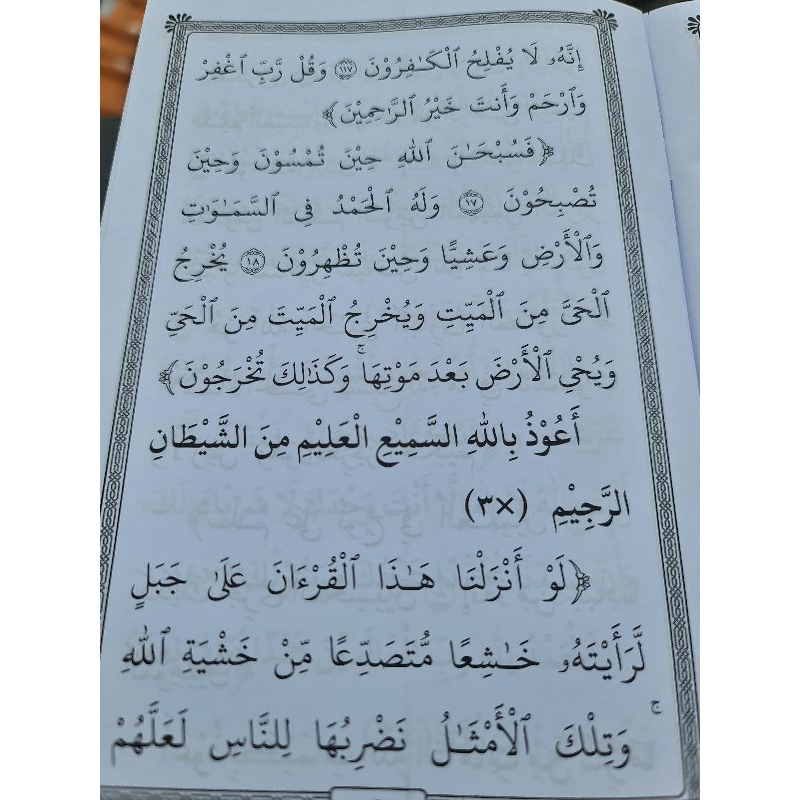 إِنَّهُۥ لَا يُفْلِحُ ٱلْكَـٰفِرُوْنَ ١١٧ وَقُلْ رَّبِّ ٱغْفِرْ
وَٱرْحَمْ وَأَنتَ خَيْرُ ٱلرَّٰحِمِيْنَ﴾
﴿فَسُبْحَـٰنَ ٱللهِ حِيْنَ تُمْسُوْنَ وَحِيْنَ
تُصْبِحُوْنَ ١٧ وَلَهُ ٱلْحَمْدُ فِى ٱلسَّمَـٰوَٰتِ
وَٱلْأَرْضِ وَعَشِيًّا وَحِيْنَ تُظْهِرُوْنَ ١٨ يُخْرِجُ
ٱلْحَىَّ مِنَ ٱلْمَيِّتِ وَيُخْرِجُ ٱلْمَيِّتَ مِنَ ٱلْحَىِّ
وَيُحْىِ ٱلْأَرْضَ بَعْدَ مَوْتِهَا ۚ وَكَذَٰلِكَ تُخْرَجُوْنَ﴾
أَعُوْذُ بِاللهِ السَّمِيْعِ الْعَلِيْمِ مِنَ الشَّيْطَانِ
الرَّجِيْمِ (×٣)
﴿لَوْ أَنْزَلْنَا هَـٰذَا ٱلْقُرْءَانَ عَلَىٰ جَبَلٍ
لَّرَأَيْتَهُۥ خَـٰشِعًا مُّتَصَدِّعًا مِّنْ خَشْيَةِ ٱللهِ ۚ
وَتِلْكَ ٱلْأَمْثَـٰلُ نَضْرِبُهَا لِلنَّاسِ لَعَلَّهُمْ